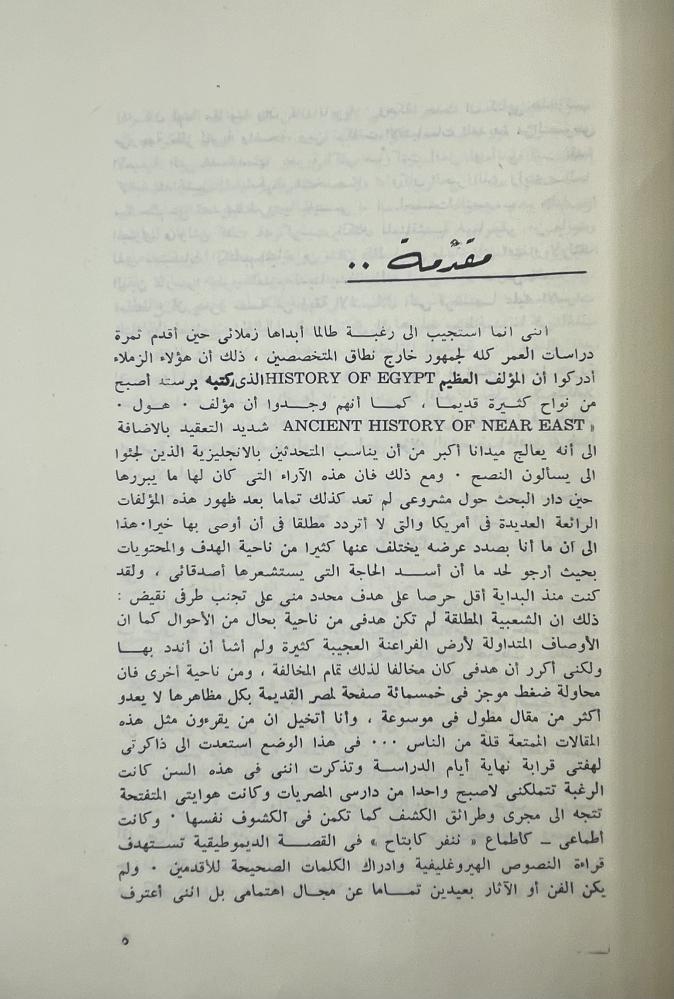 مقدّمة ..
اننى انما استجيب الى رغبة طالما أبداها زملائى حين أقدم ثمرة
دراسات العمر كله لجمهور خارج نطاق المتخصصين ، ذلك أن هؤلاء الزملاء
أدركوا أن المؤلف العظيم HISTORY OF EGYPT الذى كتبه برستد أصبح
من نواح كثيرة قديما ، كما أنهم وجدوا أن مؤلف · هول ·
« ANCIENT HISTORY OF NEAR EAST شديد التعقيد بالاضافة
الى أنه يعالج ميدانا أكبر من أن يناسب المتحدثين بالانجليزية الذين لجئوا
الى يسألون النصح · ومع ذلك فان هذه الآراء التى كان لها ما يبررها
حين دار البحث حول مشروعى لم تعد كذلك تماما بعد ظهور هذه المؤلفات
الرائعة العديدة فى أمريكا والتى لا أتردد مطلقا فى أن أوصى بها خيرا·هذا
الى ان ما أنا بصدد عرضه يختلف عنها كثيرا من ناحية الهدف والمحتويات
بحيث أرجو لحد ما أن أسد الحاجة التى يستشعرها أصدقائى ، ولقد
كنت منذ البداية أقل حرصا على هدف محدد منى على تجنب طرفى نقيض :
ذلك ان الشعبية المطلقة لم تكن هدفى من ناحية بحال من الأحوال كما ان
الأوصاف المتداولة لأرض الفراعنة العجيبة كثيرة ولم أشأ أن أندد بها
ولكنى أكرر أن هدفى كان مخالفا لذلك تمام المخالفة ، ومن ناحية أخرى فان
محاولة ضغط موجز فى خمسمائة صفحة لمصر القديمة بكل مظاهرها لا يعدو
أكثر من مقال مطول فى موسوعة ، وأنا أتخيل ان من يقرءون مثل هذه
المقالات الممتعة قلة من الناس ... فى هذا الوضع استعدت الى ذاكرتى
لهفتى قرابة نهاية أيام الدراسة وتذكرت اننى فى هذه السن كانت
الرغبة تتملكنى لاصبح واحدا من دارسى المصريات وكانت هوايتى المتفتحة
تتجه الى مجرى وطرائق الكشف كما تكمن فى الكشوف نفسها · وكانت
أطماعى ــ كاطماع « ننفر كابتاح » فى القصة الديموطيقية تستهدف
قراءة النصوص الهيروغليفية وادراك الكلمات الصحيحة للأقدمين · ولم
يكن الفن أو الآثار بعيدين تماما عن مجال اهتمامى بل اننى أعترف
٥